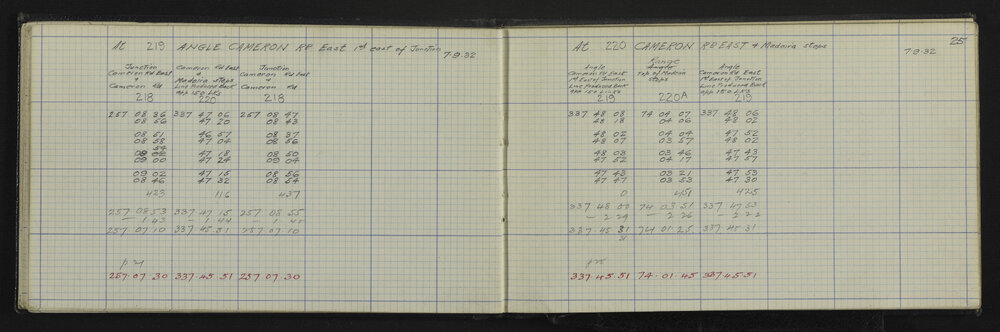 At 219 ANGLE CAMERON RD East 1st east of Junction
7-9-32
Junction Cameron Rd East Junction
Cameron Rd East & Cameron Rd East
& Madeira steps &
Cameron Rd Line Produced Back Cameron Rd
app 150 Lks
218 220 218
257 08 36 337 47 06 257 08 47
08 56 47 20 08 43
08 51 46 57 08 37
08 58 47 04 08 56
54
08 02 47 18 08 50
09 00 47 24 09 04
09 02 47 15 08 56
08 46 47 32 08 54
423 116 437
257 08 53 337 47 15 257 08 55
- 1 43 - 1 44 - 1 45
257 07 10 337 45 31 257 07 10
p 24
257.07.30 337.45.51 257.07.30
At 220 CAMERON RD EAST & Madeira steps
25
7-9-32
Angle Range Angle
Cameron Rd East Angle Cameron Rd East
1st East of Junction Top of Madeira 1st East of Junction
Line Produced Back steps Line Produced Back
app 150 Links app 150 Lks
219 220A 219
337 48 08 74 04 07 337 48 06
48 18 04 06 48 02
48 02 04 04 47 52
48 07 03 57 48 02
48 03 03 46 47 43
47 52 04 17 47 57
47 43 03 21 47 53
47 47 03 53 47 30
0 451 425
337 48 00 74 03 51 337 47 53
- 2 29 - 2 26 - 2 22
337 45 31 74 01 25 337 45 31
31
p 25
337.45.51 74.01.45 337.45.51